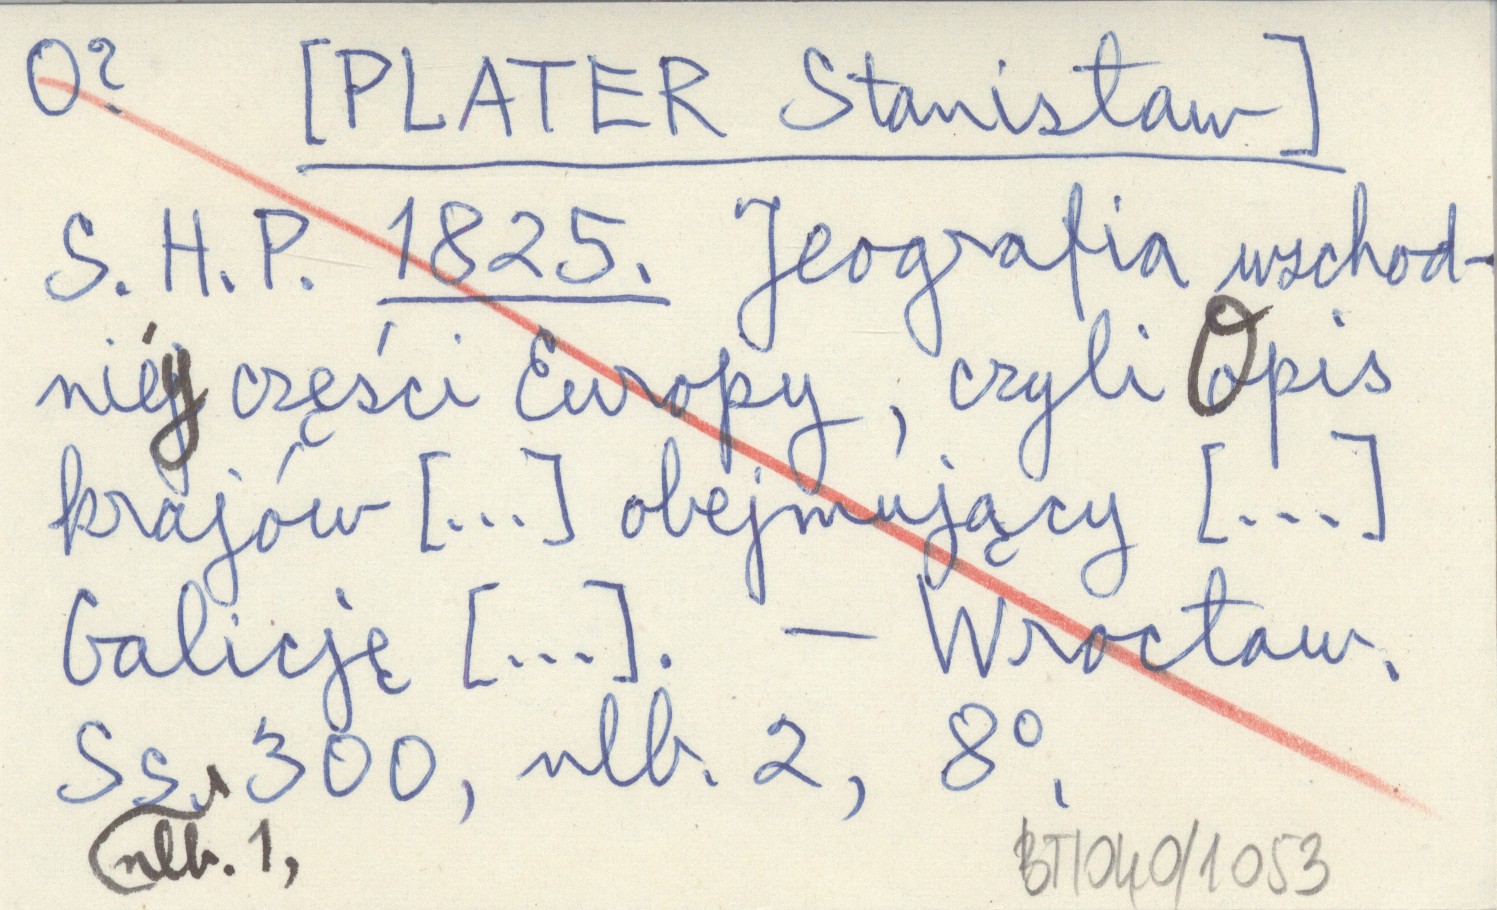 O? [PLATER Stanisław]
S.H.P. 1825. Jeografia wschod-
niéy części Europy, czyli Opis
krajów [...] obejmujący [...]
Galicję [...]. — Wrocław.
Ss. 300, nlb. 2, 8°.
nlb. 1,
BT/040/1053